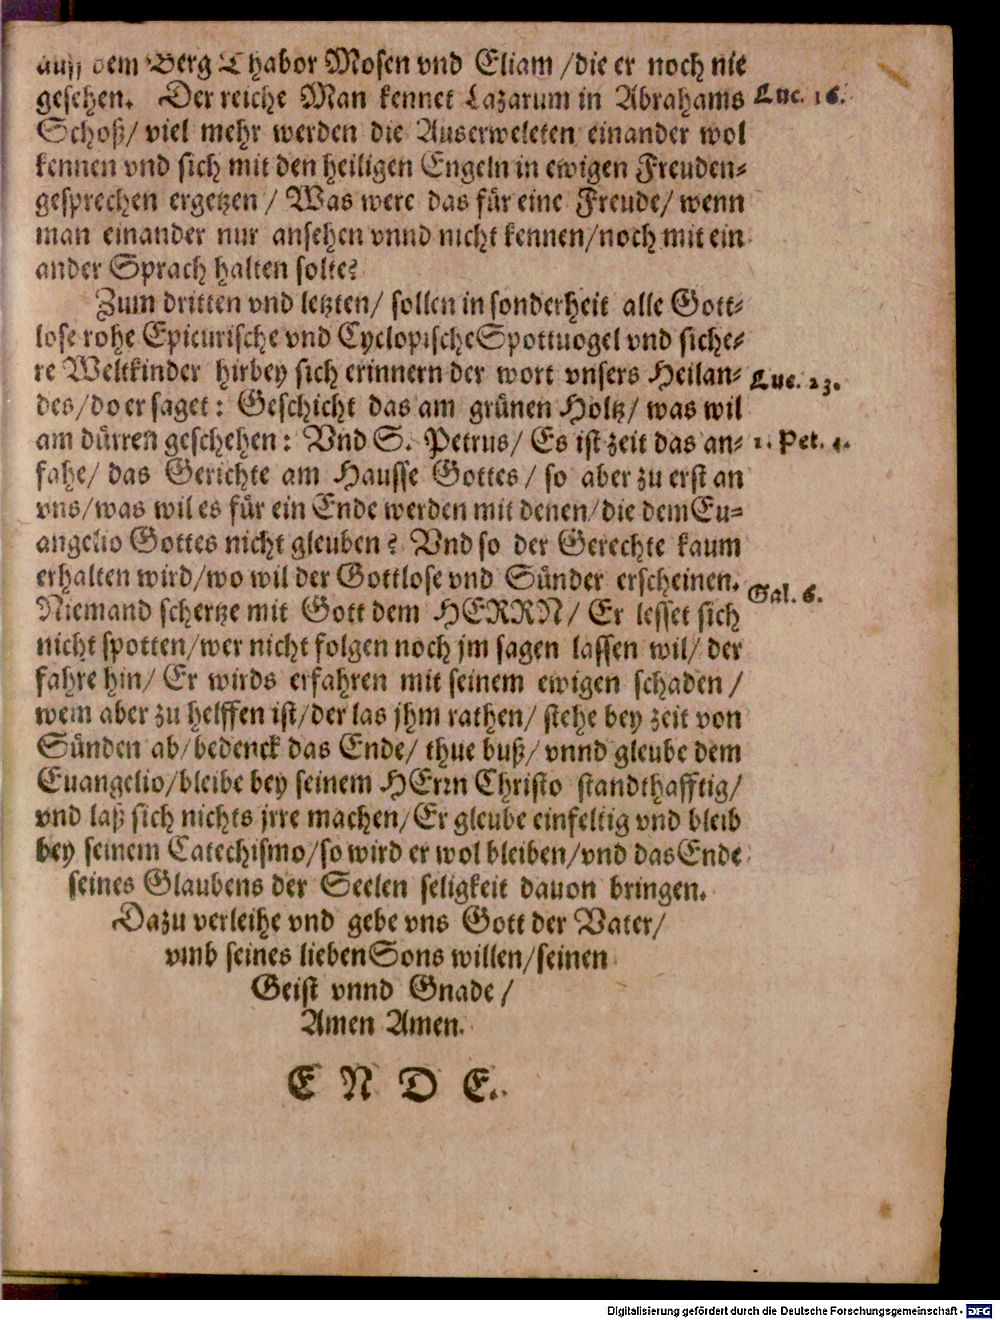 auff dem Berg Thabor Mosen vnd Eliam / die er noch nie
gesehen. Der reiche Man kennet Lazarum in Abrahams
Luc. 16.
Schoß / viel mehr werden die Auserweleten einander wol
kennen vnd sich mit den heiligen Engeln in ewigen Freuden-
gesprechen ergetzen / Was were das für eine Freude / wenn
man einander nur ansehen vnnd nicht kennen / noch mit ein
ander Sprach halten solte?
Zum dritten vnd letzten / sollen in sonderheit alle Gott-
lose rohe Epicurische vnd Cyclopische Spottuogel vnd siche-
re Weltkinder hirbey sich erinnern der wort vnsers Heilan-
Luc. 23.
des / do er saget: Geschicht das am grünen Holtz / was wil
am dürren geschehen: Vnd S. Petrus / Es ist zeit das an-
1. Pet. 4.
fahe / das Gerichte am Hausse Gottes / so aber zu erst an
vns / was wil es für ein Ende werden mit denen / die dem Eu-
angelio Gottes nicht gleuben? Vnd so der Gerechte kaum
erhalten wird / wo wil der Gottlose vnd Sünder erscheinen.
Gal. 6.
Niemand schertze mit Gott dem HERRN / Er lesset sich
nicht spotten / wer nicht folgen noch jm sagen lassen wil / der
fahre hin / Er wirds erfahren mit seinem ewigen schaden /
wem aber zu helffen ist / der las jhm rathen / stehe bey zeit von
Sünden ab / bedenck das Ende / thue buß / vnnd gleube dem
Euangelio / bleibe bey seinem HErrn Christo standthafftig /
vnd laß sich nichts jrre machen / Er gleube einfeltig vnd bleib
bey seinem Catechismo / so wird er wol bleiben / vnd das Ende
seines Glaubens der Seelen seligkeit dauon bringen.
Dazu verleihe vnd gebe vns Gott der Vater /
vmb seines lieben Sons willen / seinen
Geist vnnd Gnade /
Amen Amen.
E N D E.
Digitalisierung gefördert durch die Deutsche Forschungsgemeinschaft - DFG